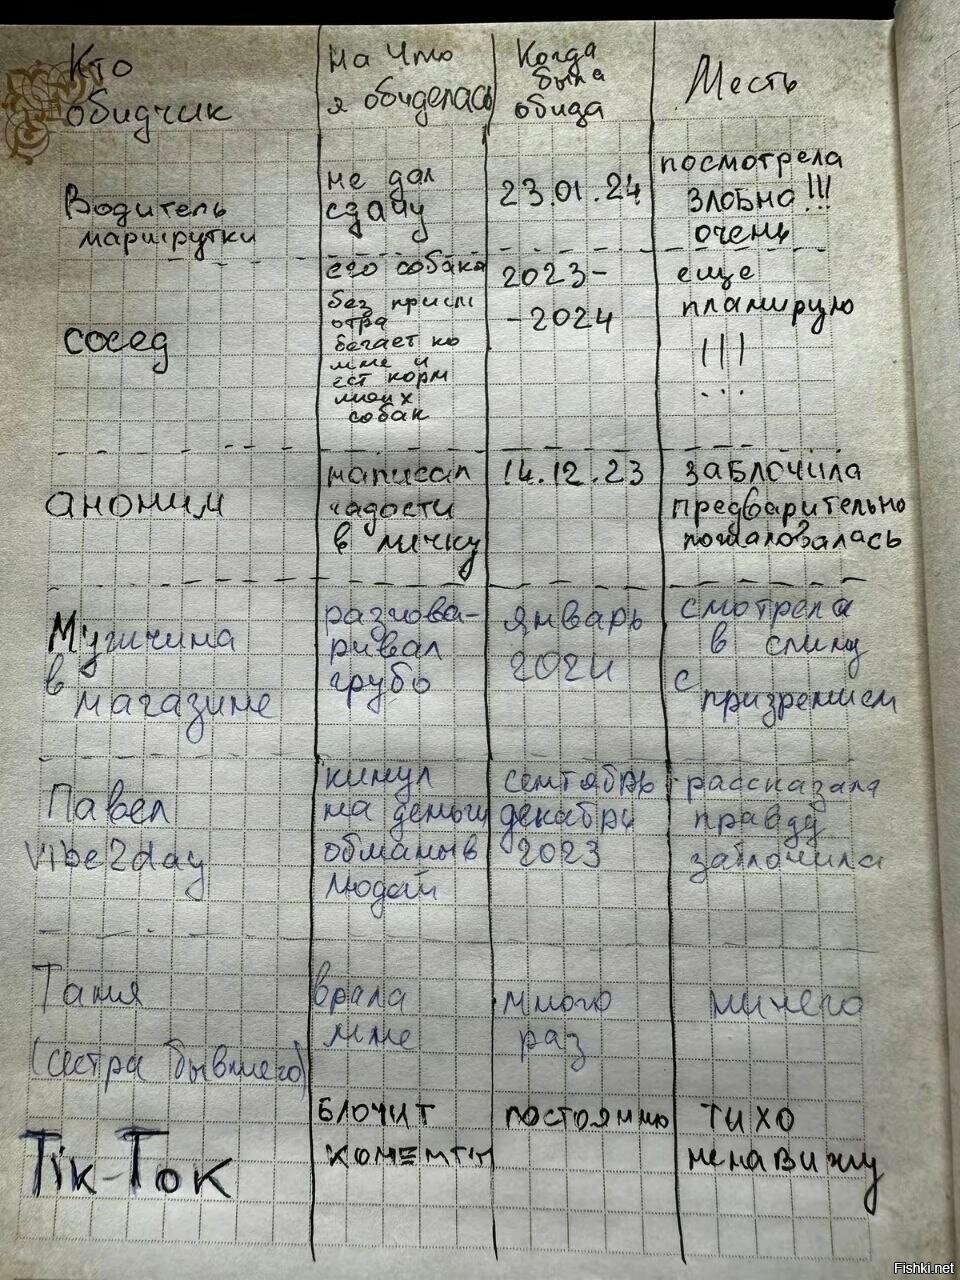 Кто
обидчик
на что
я обиделась
Когда
была
обида
Месть
Водитель
маршрутки
не дал
сдачу
23.01.24
посмотрела
злобно!!!
очень
сосед
его собака
без присм
отра
бегает ко
мне и
ест корм
моих
собак
2023-
-2024
еще
планирую
!!!
...
аноним
написал
гадости
в личку
14.12.23
заблочила
предварительно
пожаловалась
Мужчина
в
магазине
разгова-
ривал
грубо
январь
2024
смотрела
в спину
с
призрением
Павел
vibe2day
кинул
на деньги
обманыв
людей
сентябрь
декабрь
2023
рассказала
правду
заблочила
Таня
(сестра бывшего)
врала
мне
много
раз
ничего
Tik-Tok
блочит
коменты
постоянно
тихо
ненавижу
Fishki.net